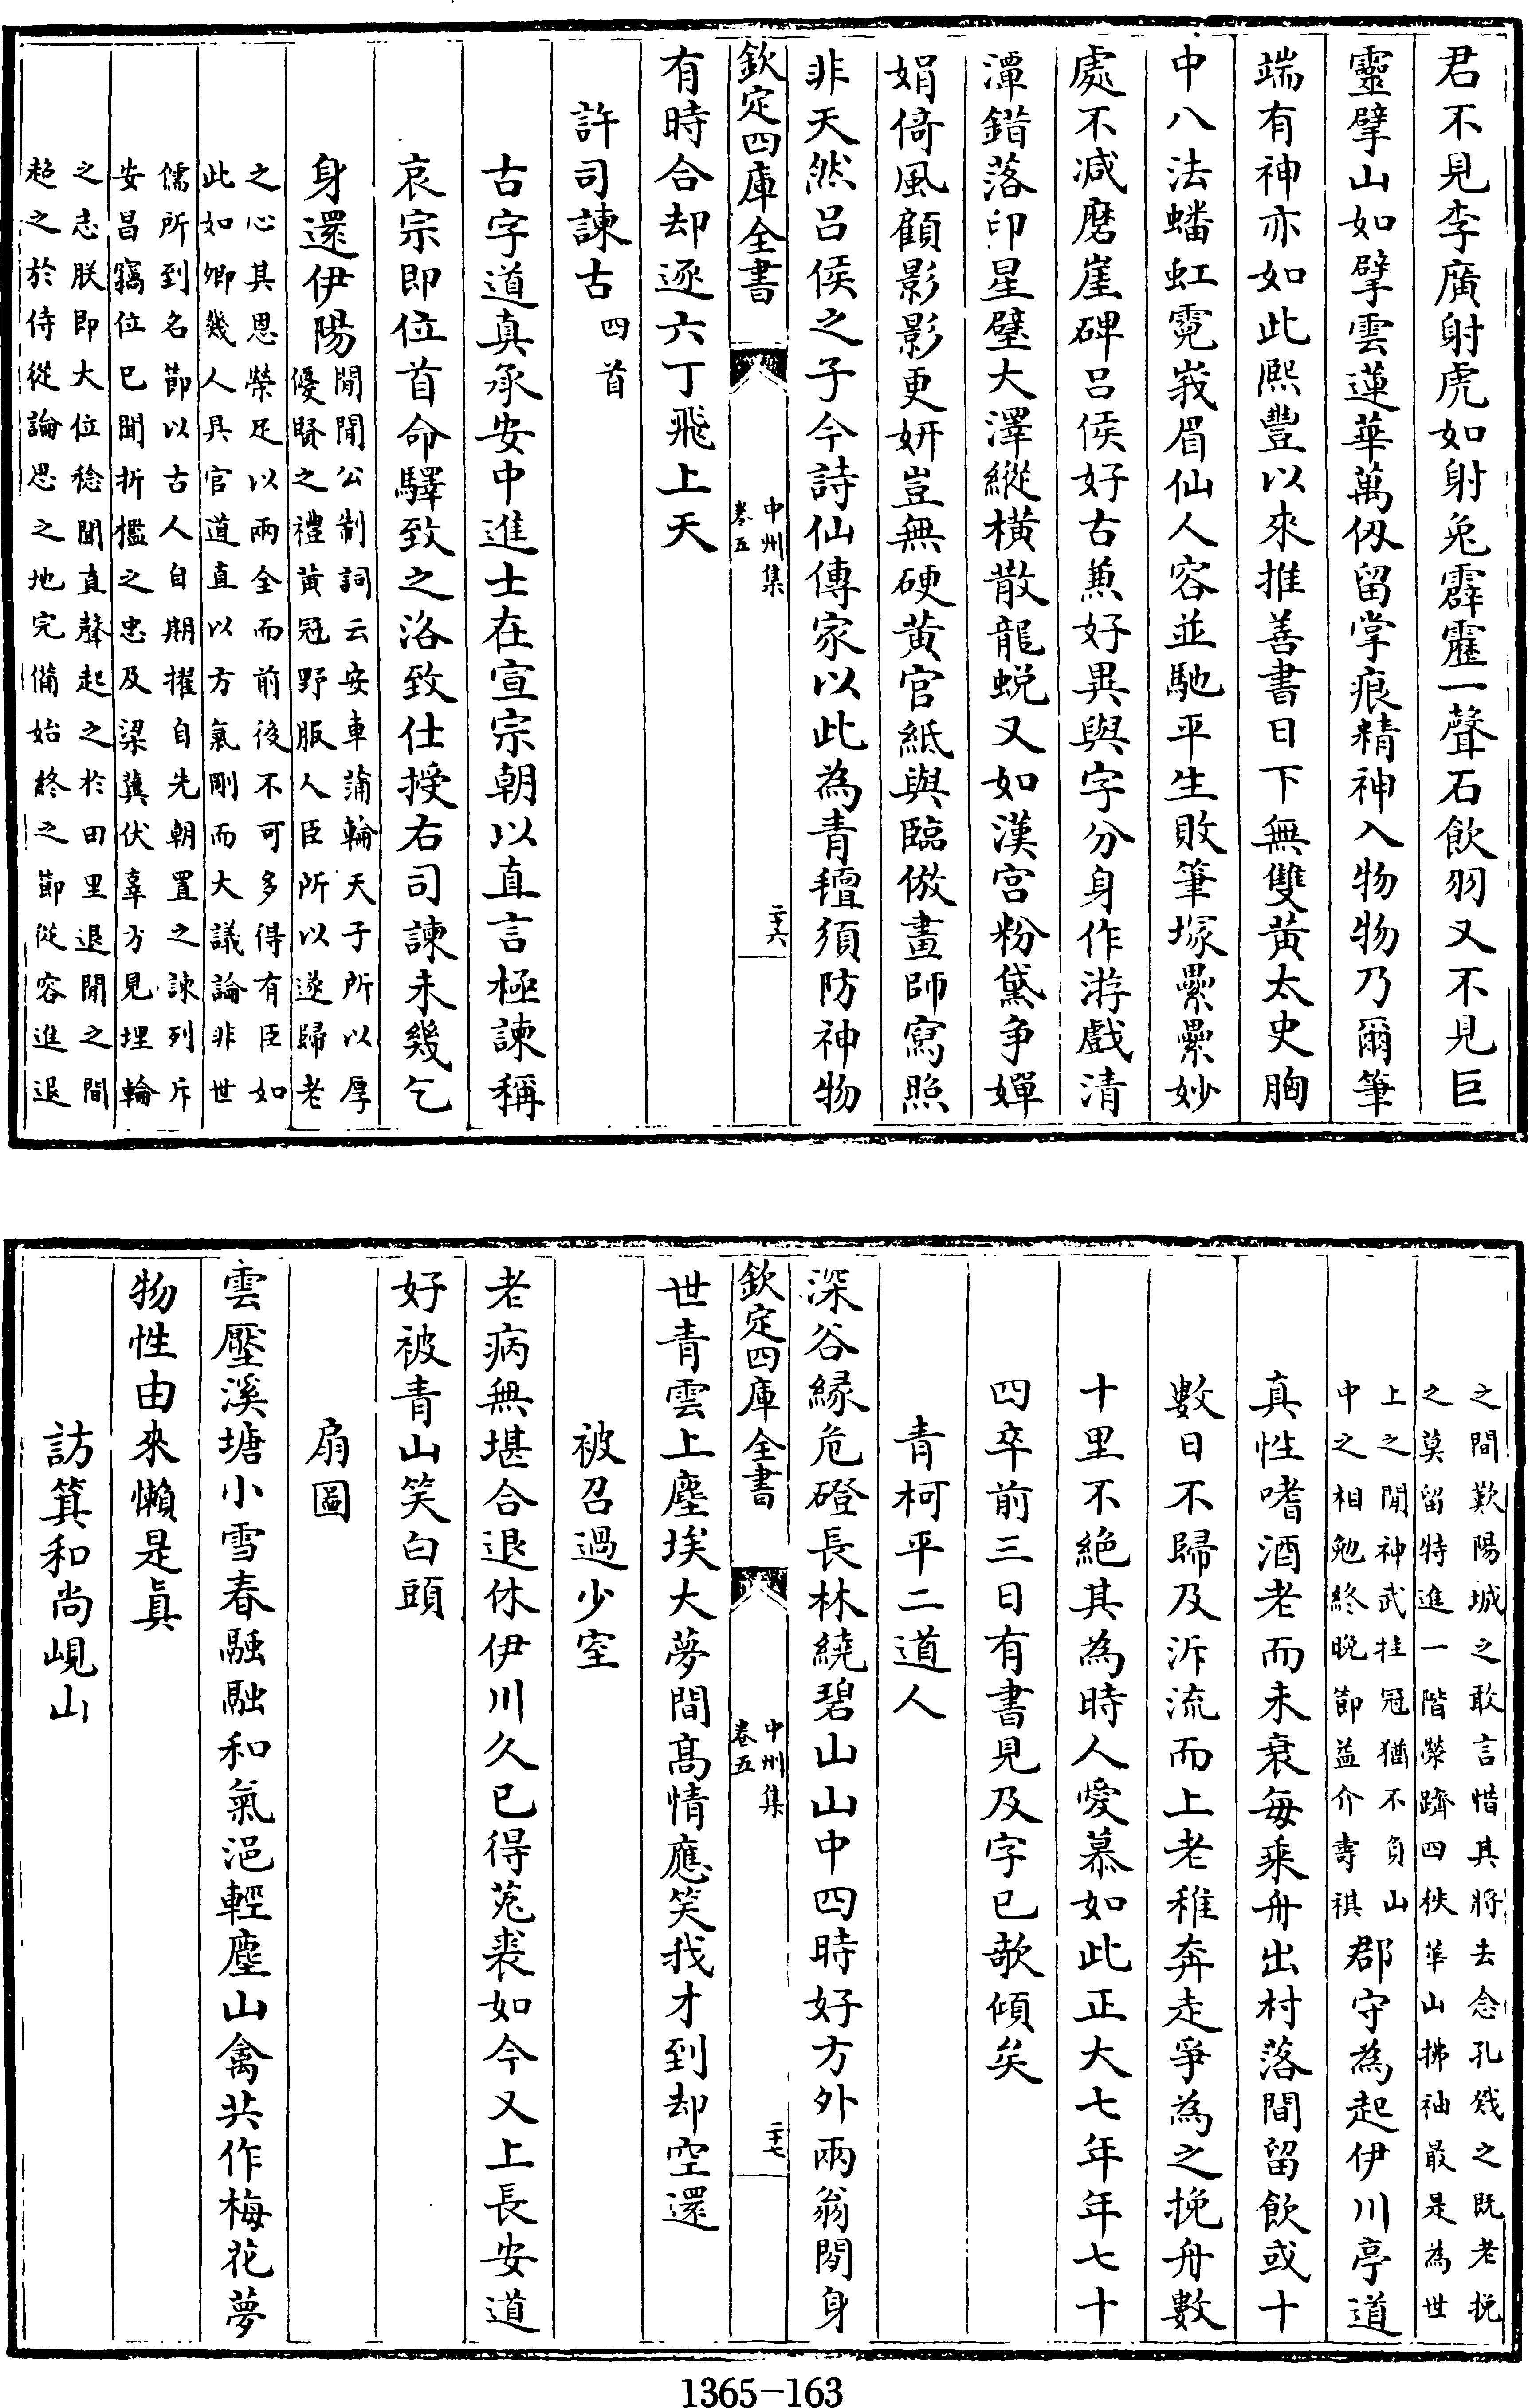 君不見李廣射虎如射兎霹靂一聲石飲羽又不見巨
靈擘山如擘雲蓮華萬仭留掌痕精神入物物乃爾筆
端有神亦如此熙豐以來推善書日下無雙黃太史胸
中八法蟠虹霓峩眉仙人容並馳平生敗筆塚纍纍妙
處不減磨崖碑吕侯好古兼好異與字分身作游戲清
潭錯落印星躔大澤縱橫散龍蜕又如漢宫粉黛争嬋
娟倚風顧影影更妍豈無硬黃官紙與臨倣畫師寫照
非天然吕侯之子今詩仙傳家以此為青氊須防神物
欽定四庫全書
中州集
卷五
二十六
有時合却逐六丁飛上天
許司諫古四首
古字道真承安中進士在宣宗朝以直言極諫稱
哀宗即位首命驛致之洛致仕授右司諫未幾乞
身還伊陽
閒閒公制詞云安車蒲輪天子所以厚
優賢之禮黃冠野服人臣所以遂歸老
之心其恩榮足以兩全而前後不可多得有臣如
此如卿幾人具官道直以方氣剛而大議論非世
儒所到名節以古人自期擢自先朝置之諫列斥
安昌竊位已聞折檻之忠及梁冀伏辜方見埋輪
之志朕即大位稔聞直聲起之於田里退閒之間
超之於侍從論思之地完備始終之節從容進退
之間歎陽城之敢言惜其將去念孔戣之既老挽
之莫留特進一階榮躋四秩華山拂袖最是為世
上之閒神武挂冠猶不負山
中之相勉終晚節益介壽祺
郡守為起伊川亭道
真性嗜酒老而未衰每乘舟出村落間留飲或十
數日不歸及泝流而上老稚奔走爭為之挽舟數
十里不絶其為時人愛慕如此正大七年年七十
四卒前三日有書見及字已欹傾矣
青柯平二道人
深谷緣危磴長林繞碧山山中四時好方外兩翁閒身
欽定四庫全書
中州集
卷五
二十七
世青雲上塵埃大夢間髙情應笑我才到却空還
被召過少室
老病無堪合退休伊川久已得菟裘如今又上長安道
好被青山笑白頭
扇圖
雲壓溪塘小雪春融融和氣浥輕塵山禽共作梅花夢
物性由來懶是真
訪箕和尚峴山
1365-163